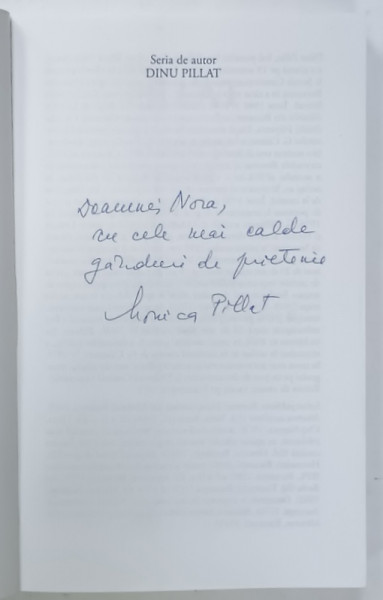 Seria de autor
DINU PILLAT
Doamnei Nora,
cu cele mai calde
gânduri de prietenie
Monica Pillat